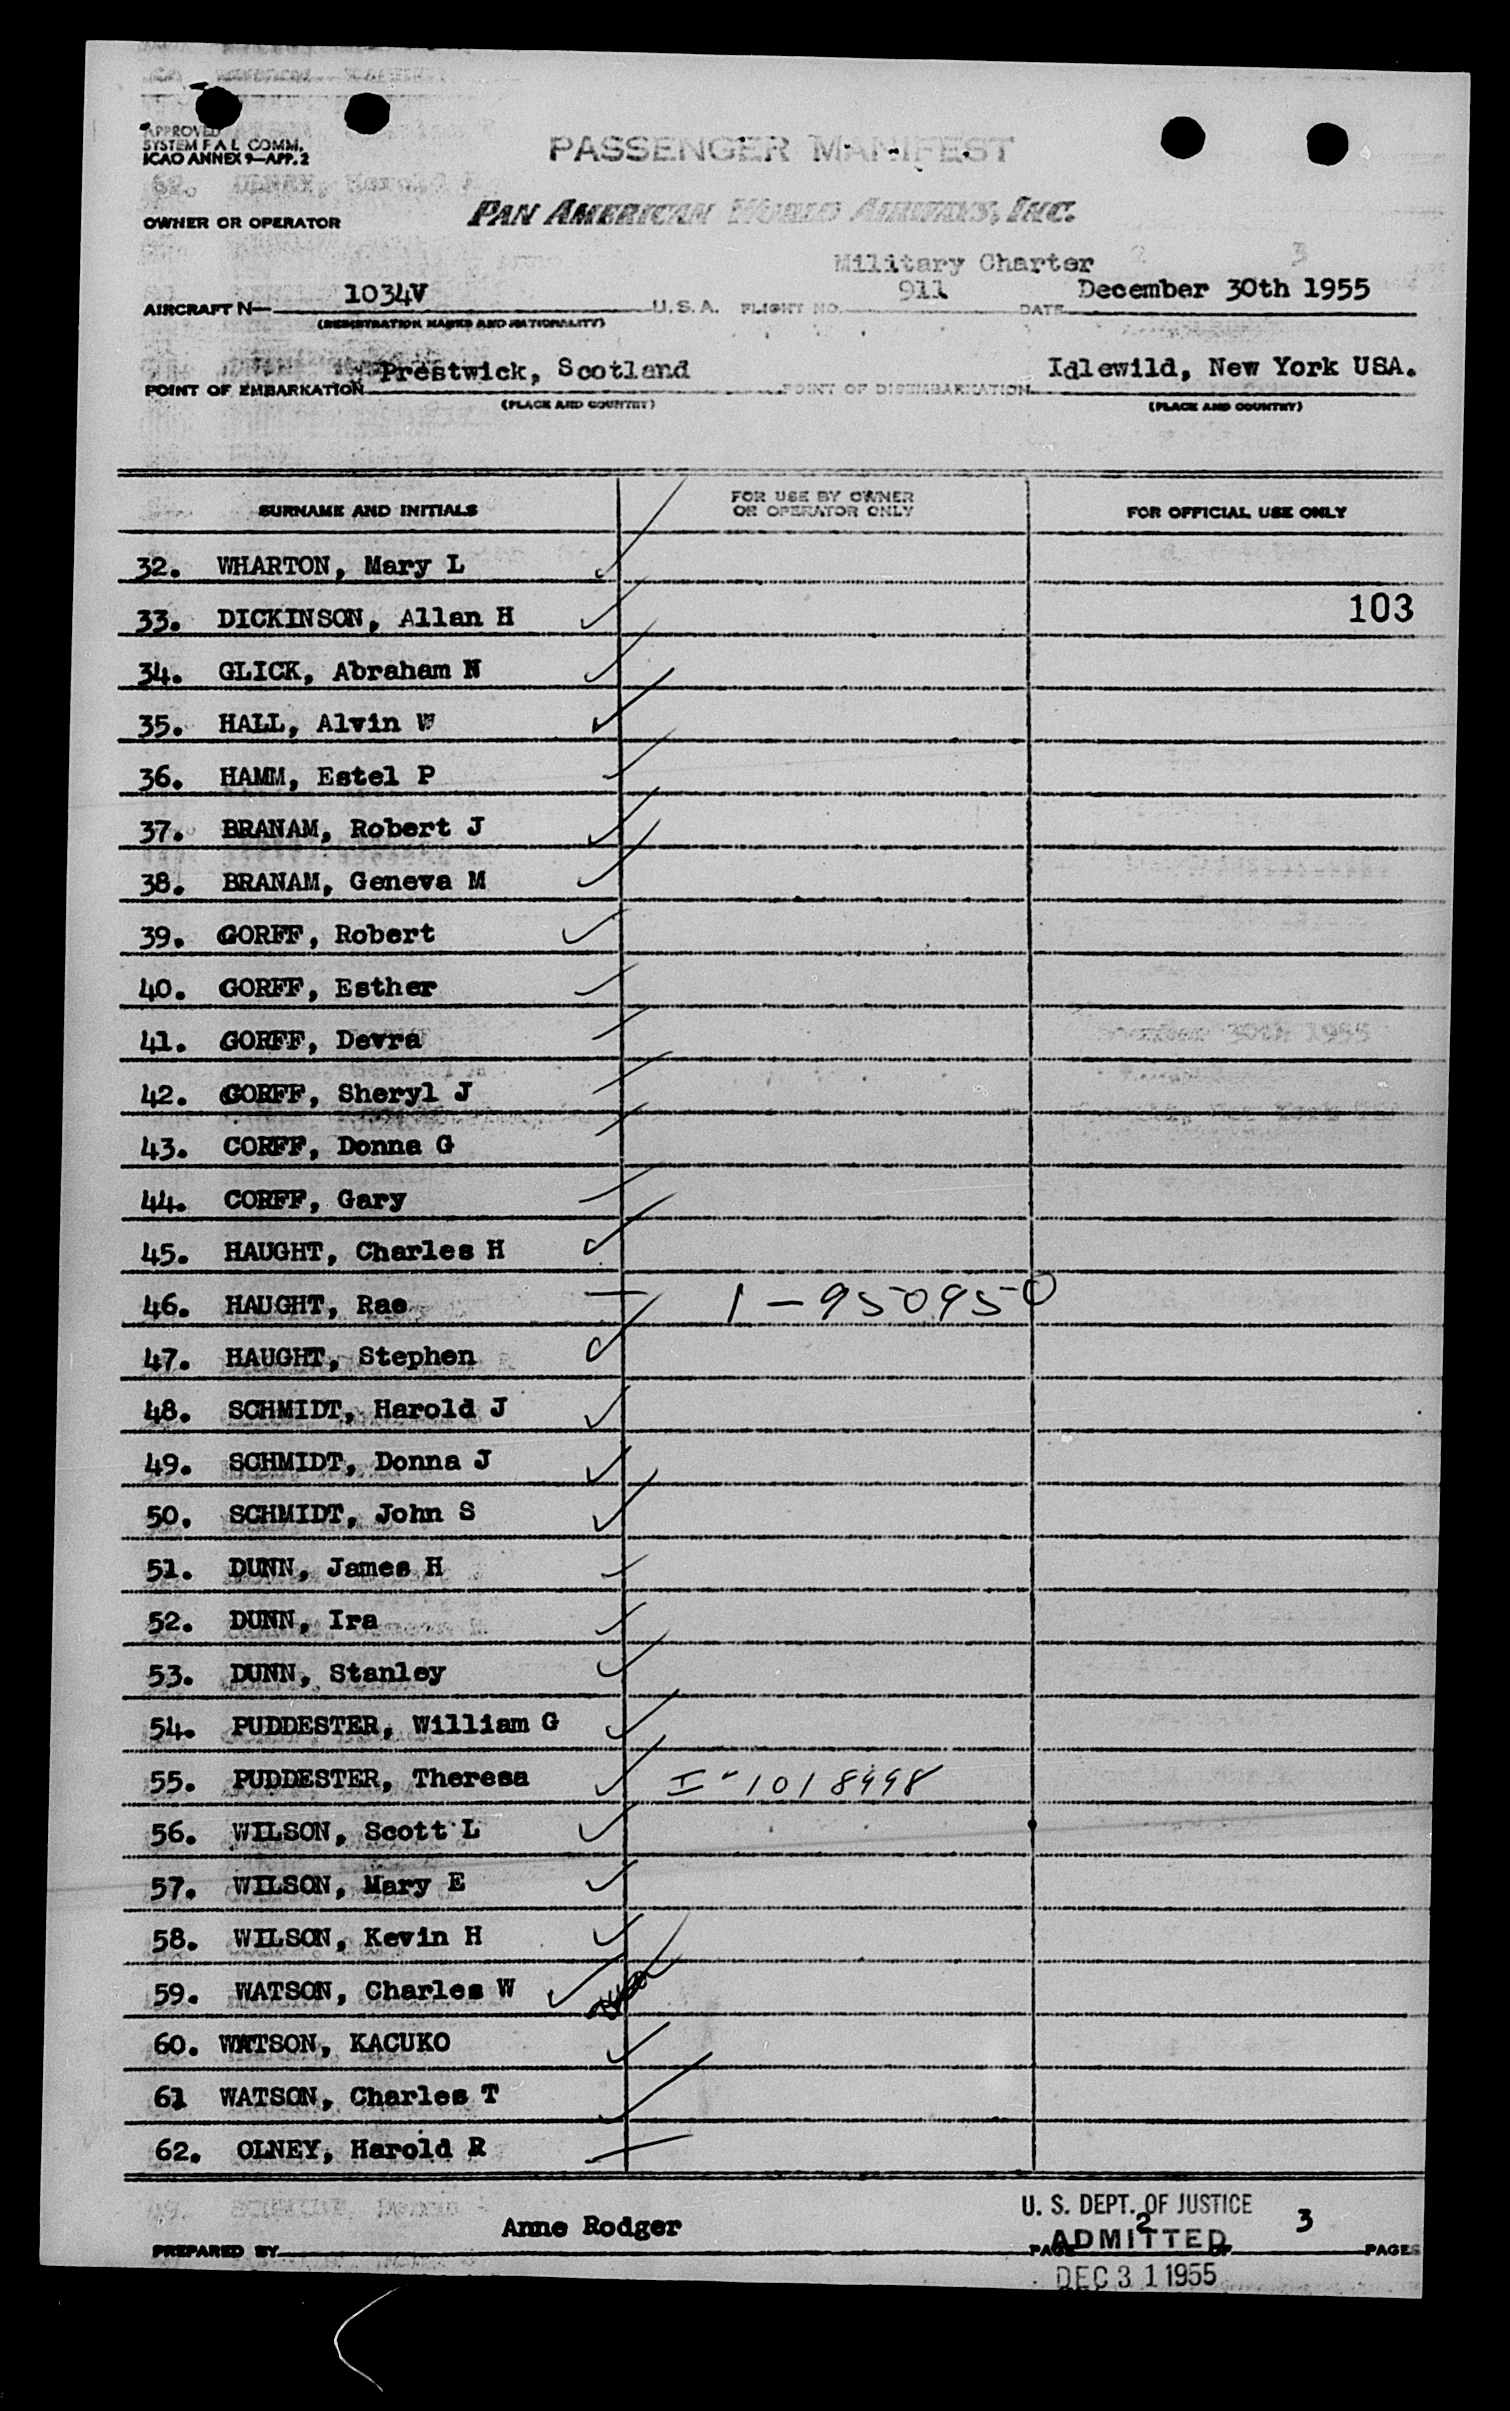 APPROVED
SYSTEM F A L COMM.
ICAO ANNEX 9—APP. 2
PASSENGER MANIFEST
OWNER OR OPERATOR
PAN AMERICAN WORLD AIRWAYS, INC.
Military Charter 2 3
AIRCRAFT N— 1034V U.S.A. FLIGHT NO. 911 DATE December 30th 1955
(REGISTRATION MARKS AND NATIONALITY)
POINT OF EMBARKATION Prestwick, Scotland POINT OF DISEMBARKATION Idlewild, New York USA.
(PLACE AND COUNTRY) (PLACE AND COUNTRY)
SURNAME AND INITIALS FOR USE BY OWNER OR OPERATOR ONLY FOR OFFICIAL USE ONLY
32. WHARTON, Mary L
33. DICKINSON, Allan H 103
34. GLICK, Abraham N
35. HALL, Alvin W
36. HAMM, Estel P
37. BRANAM, Robert J
38. BRANAM, Geneva M
39. GORFF, Robert
40. GORFF, Esther
41. GORFF, Devra
42. GORFF, Sheryl J
43. CORFF, Donna G
44. CORFF, Gary
45. HAUGHT, Charles H
46. HAUGHT, Rae 1-950950
47. HAUGHT, Stephen
48. SCHMIDT, Harold J
49. SCHMIDT, Donna J
50. SCHMIDT, John S
51. DUNN, James H
52. DUNN, Ira
53. DUNN, Stanley
54. PUDDESTER, William G
55. PUDDESTER, Theresa I-1018998
56. WILSON, Scott L
57. WILSON, Mary E
58. WILSON, Kevin H
59. WATSON, Charles W
60. WATSON, KACUKO
61 WATSON, Charles T
62. OLNEY, Harold R
PREPARED BY Anne Rodger PAGE 2 OF 3 PAGES
U. S. DEPT. OF JUSTICE
ADMITTED
DEC 31 1955